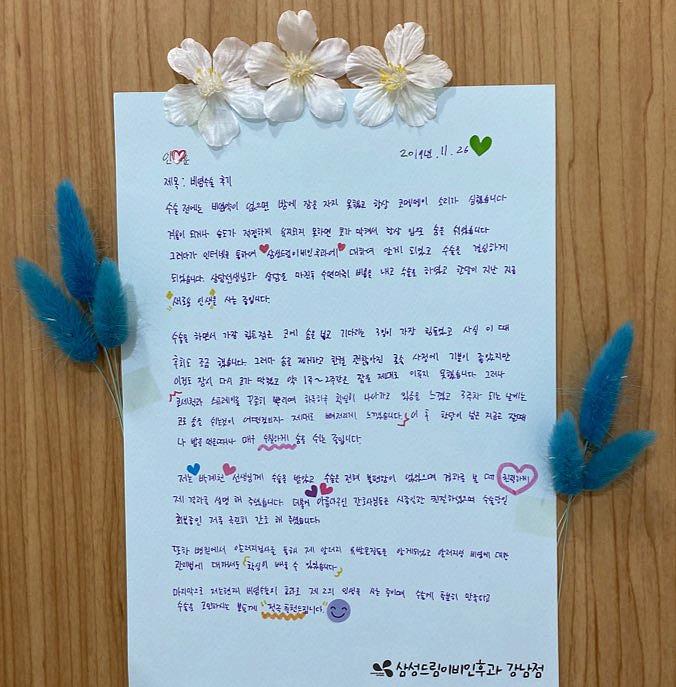 2019년. 11. 26
제목: 비염수술 후기
수술 전에는 비염약이 없으면 밤에 잠은 자지 못했고 항상 코맹맹이 소리가 심했습니다
겨울이 되거나 습도가 적절하게 유지되지 못하면 코가 막혀서 항상 입으로 숨은 쉬었습니다
그러다가 인터넷을 통하여 삼성드림이비인후과에 대하여 알게 되었고 수술을 결심하게
되었습니다. 상담선생님과 상담을 마친후 수면마취 비용을 내고 수술을 하였고 한달이 지난 지금
새로운 인생을 사는 중입니다.
수술을 하면서 가장 힘든점은 코에 솜을 넣고 기다리는 3일이 가장 힘들었고 사실 이 때
후회도 조금 했습니다. 그러다 솜을 제거하고 한결 괜찮아진 호흡 사정에 기분이 좋았지만
이것도 잠시 다시 코가 막혔고 약 1주~2주간은 잠을 제대로 이루지 못했습니다. 그러나
코세척과 스프레이를 꾸준히 뿌리며 하루하루 확실히 나아가고 있음을 느꼈고 3주차 되는 날에는
코로 숨을 쉬는것이 어떤것인지 제대로 뼈저리게 느꼈습니다. 이 후 한달이 넘은 지금은 잘때
나 밥을 먹을때나 매우 수월하게 숨을 쉬는 중입니다.
저는 선생님께 수술을 받았고 수술은 전혀 불편함이 없었으며 결과를 볼 때 친절하게
제 결과를 설명 해 주셨습니다. 더불어 아름다우신 간호사님들은 시종일관 친절하셨으며 수술당일
회복중인 저를 극진히 간호 해 주셨습니다.
또한 병원에서 알레르기검사를 통해 제 알러지 유발물질들을 알게되었고 알러지성 비염에 대한
관리법에 대해서도 확실히 배울 수 있었습니다.
마지막으로 저는현재 비염수술의 효과로 제 2의 인생을 사는 중이며 수술에 충분히 만족하고
수술을 고민하시는 분들께 "적극 추천드립니다."
삼성드림이비인후과 강남점